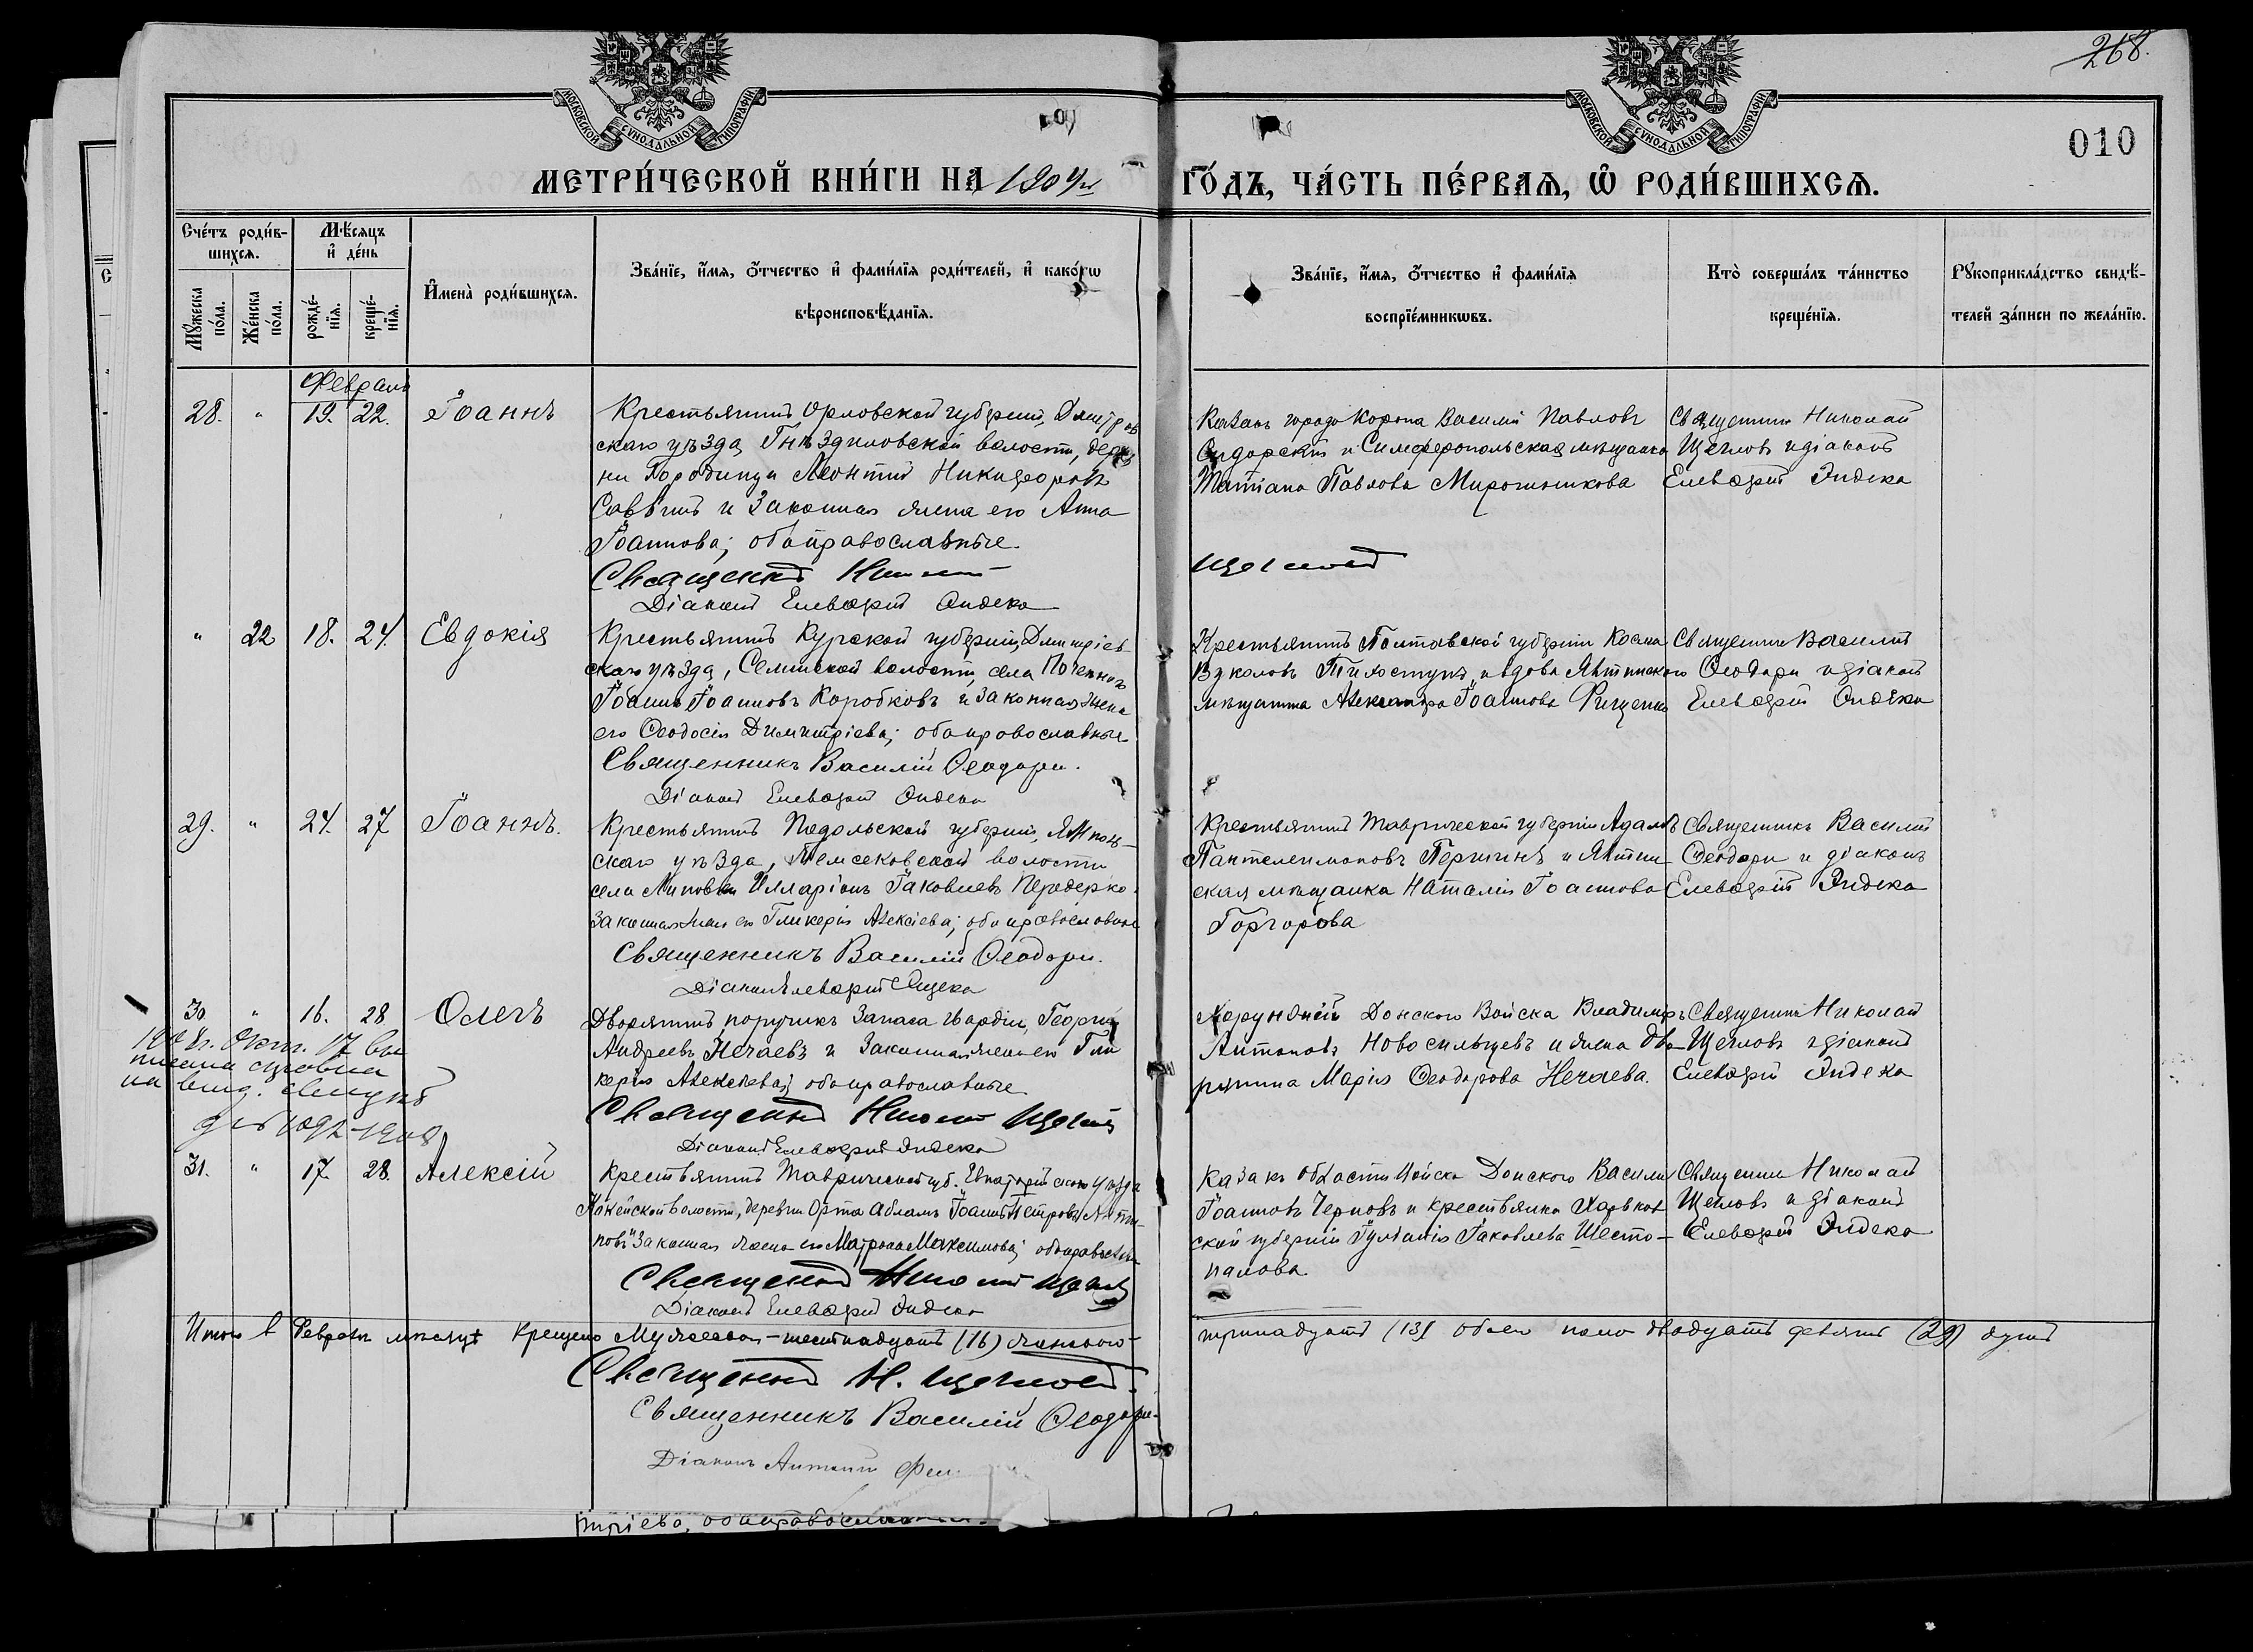 268.
010
МОСКОВСКОЙ СѴНОДАЛЬНОЙ ТИПОГРАФІИ
МОСКОВСКОЙ СѴНОДАЛЬНОЙ ТИПОГРАФІИ
МЕТРИ́ЧЕСКОЙ КНИ́ГИ НА 1904й ГО́ДЪ, ЧА́СТЬ ПЕ́РВАѦ, Ѽ РОДИ́ВШИХСѦ.
Сче́тъ роди́в-
шихсѧ.
Мꙋ́жеска по́ла.
Же́нска по́ла.
Мѣ́сѧцъ
и҆ де́нь
рожде́-
нїѧ.
креще́-
нїѧ.
И҆мена̀ роди́вшихсѧ.
Зва́нїе, и҆́мѧ, ѻ҆́тчество и҆ фами́лїѧ роди́телей, и҆ како́гѡ
вѣроисповѣ́данїѧ.
Зва́нїе, и҆́мѧ, ѻ҆́тчество и҆ фами́лїѧ
воспрїе́мникѡвъ.
Кто̀ соверша́лъ та́инство
креще́нїѧ.
Рꙋкоприкла́дство свидѣ́-
телей за́писи по жела́нїю.
Февраль
28. " 19. 22. Іоаннъ
Крестьянинъ Орловской губерніи, Дмитров
скаго уѣзда, Гнѣздиловской волости, дерев
ни Городища Леонтій Никифоровъ
Саввинъ и законная жена его Анна
Іоаннова; оба православные.
Священникъ Николай
Діаконъ Елевферій Эндека
Казакъ города Коропа Василій Павловъ
Сидорскій и Симферопольская мѣщанка
Татіана Павлова Мирошникова
Щегловъ
Священникъ Николай
Щегловъ и діаконъ
Елевферій Эндека
" 22 18. 24. Евдокія
Крестьянинъ Курской губерніи, Дмитріев
скаго уѣзда, волости, села
Іоаннъ Іоанновъ Коробковъ и законная жена
его Ѳеодосія Димитріева; оба православные
Священникъ Василій Ѳеодори.
Діаконъ Елевферій Эндека
Крестьянинъ Полтавской губерніи Косма
Вуколовъ и вдова Ялтинскаго
мѣщанина Александра Іоаннова
Священникъ Василій
Ѳеодори и діаконъ
Елевферій Эндека
29. " 24. 27 Іоаннъ.
Крестьянинъ Подольской губерніи, Ямполь-
скаго уѣзда, волости
села Илларіонъ Іаковлевъ
законная жена его Гликерія Алексіева; оба православные
Священникъ Василій Ѳеодори.
Діаконъ Елевферій Эндека
Крестьянинъ Таврической губерніи Адамъ
Пантелеимоновъ Першинъ и Ялтин-
ская мѣщанка Наталія Іоаннова
Горгорова
Священникъ Василій
Ѳеодори и діаконъ
Елевферій Эндека
30 " 16. 28 Олегъ
Дворянинъ, поручикъ запаса гвардіи, Георгій
Андреевъ Нечаевъ и законная жена его Гли
керія Алексіева; оба православные
Священникъ Николай Щегловъ
Діаконъ Елевферій Эндека
Хорунжій Донскаго Войска Владиміръ
Антоновъ Новосильцевъ и жена дво-
рянина Марія Ѳеодорова Нечаева.
Священникъ Николай
Щегловъ и діаконъ
Елевферій Эндека
1908г. Окт. 17
31. " 17. 28. Алексій
Крестьянинъ Таврической губ. Евпаторійскаго уѣзда
волости, деревни Орта Абламъ Іоаннъ Петровъ Анти-
повъ и законная жена его Матрона Максимова; оба православные
Священникъ Николай Щегловъ
Діаконъ Елевферій Эндека
Казакъ области Войска Донскаго Василій
Іоанновъ Черновъ и крестьянка Харьков
ской губерніи Іуліанія Іаковлева Шесто-
палова
Священникъ Николай
Щегловъ и діаконъ
Елевферій Эндека
Итого въ Февралѣ мѣсяцѣ крещено Мужескаго - шестнадцать (16) женскаго - тринадцать (13) обоего пола двадцать девять (29) душъ
Священникъ Н. Щегловъ.
Священникъ Василій Ѳеодори.
Діаконъ Антоній